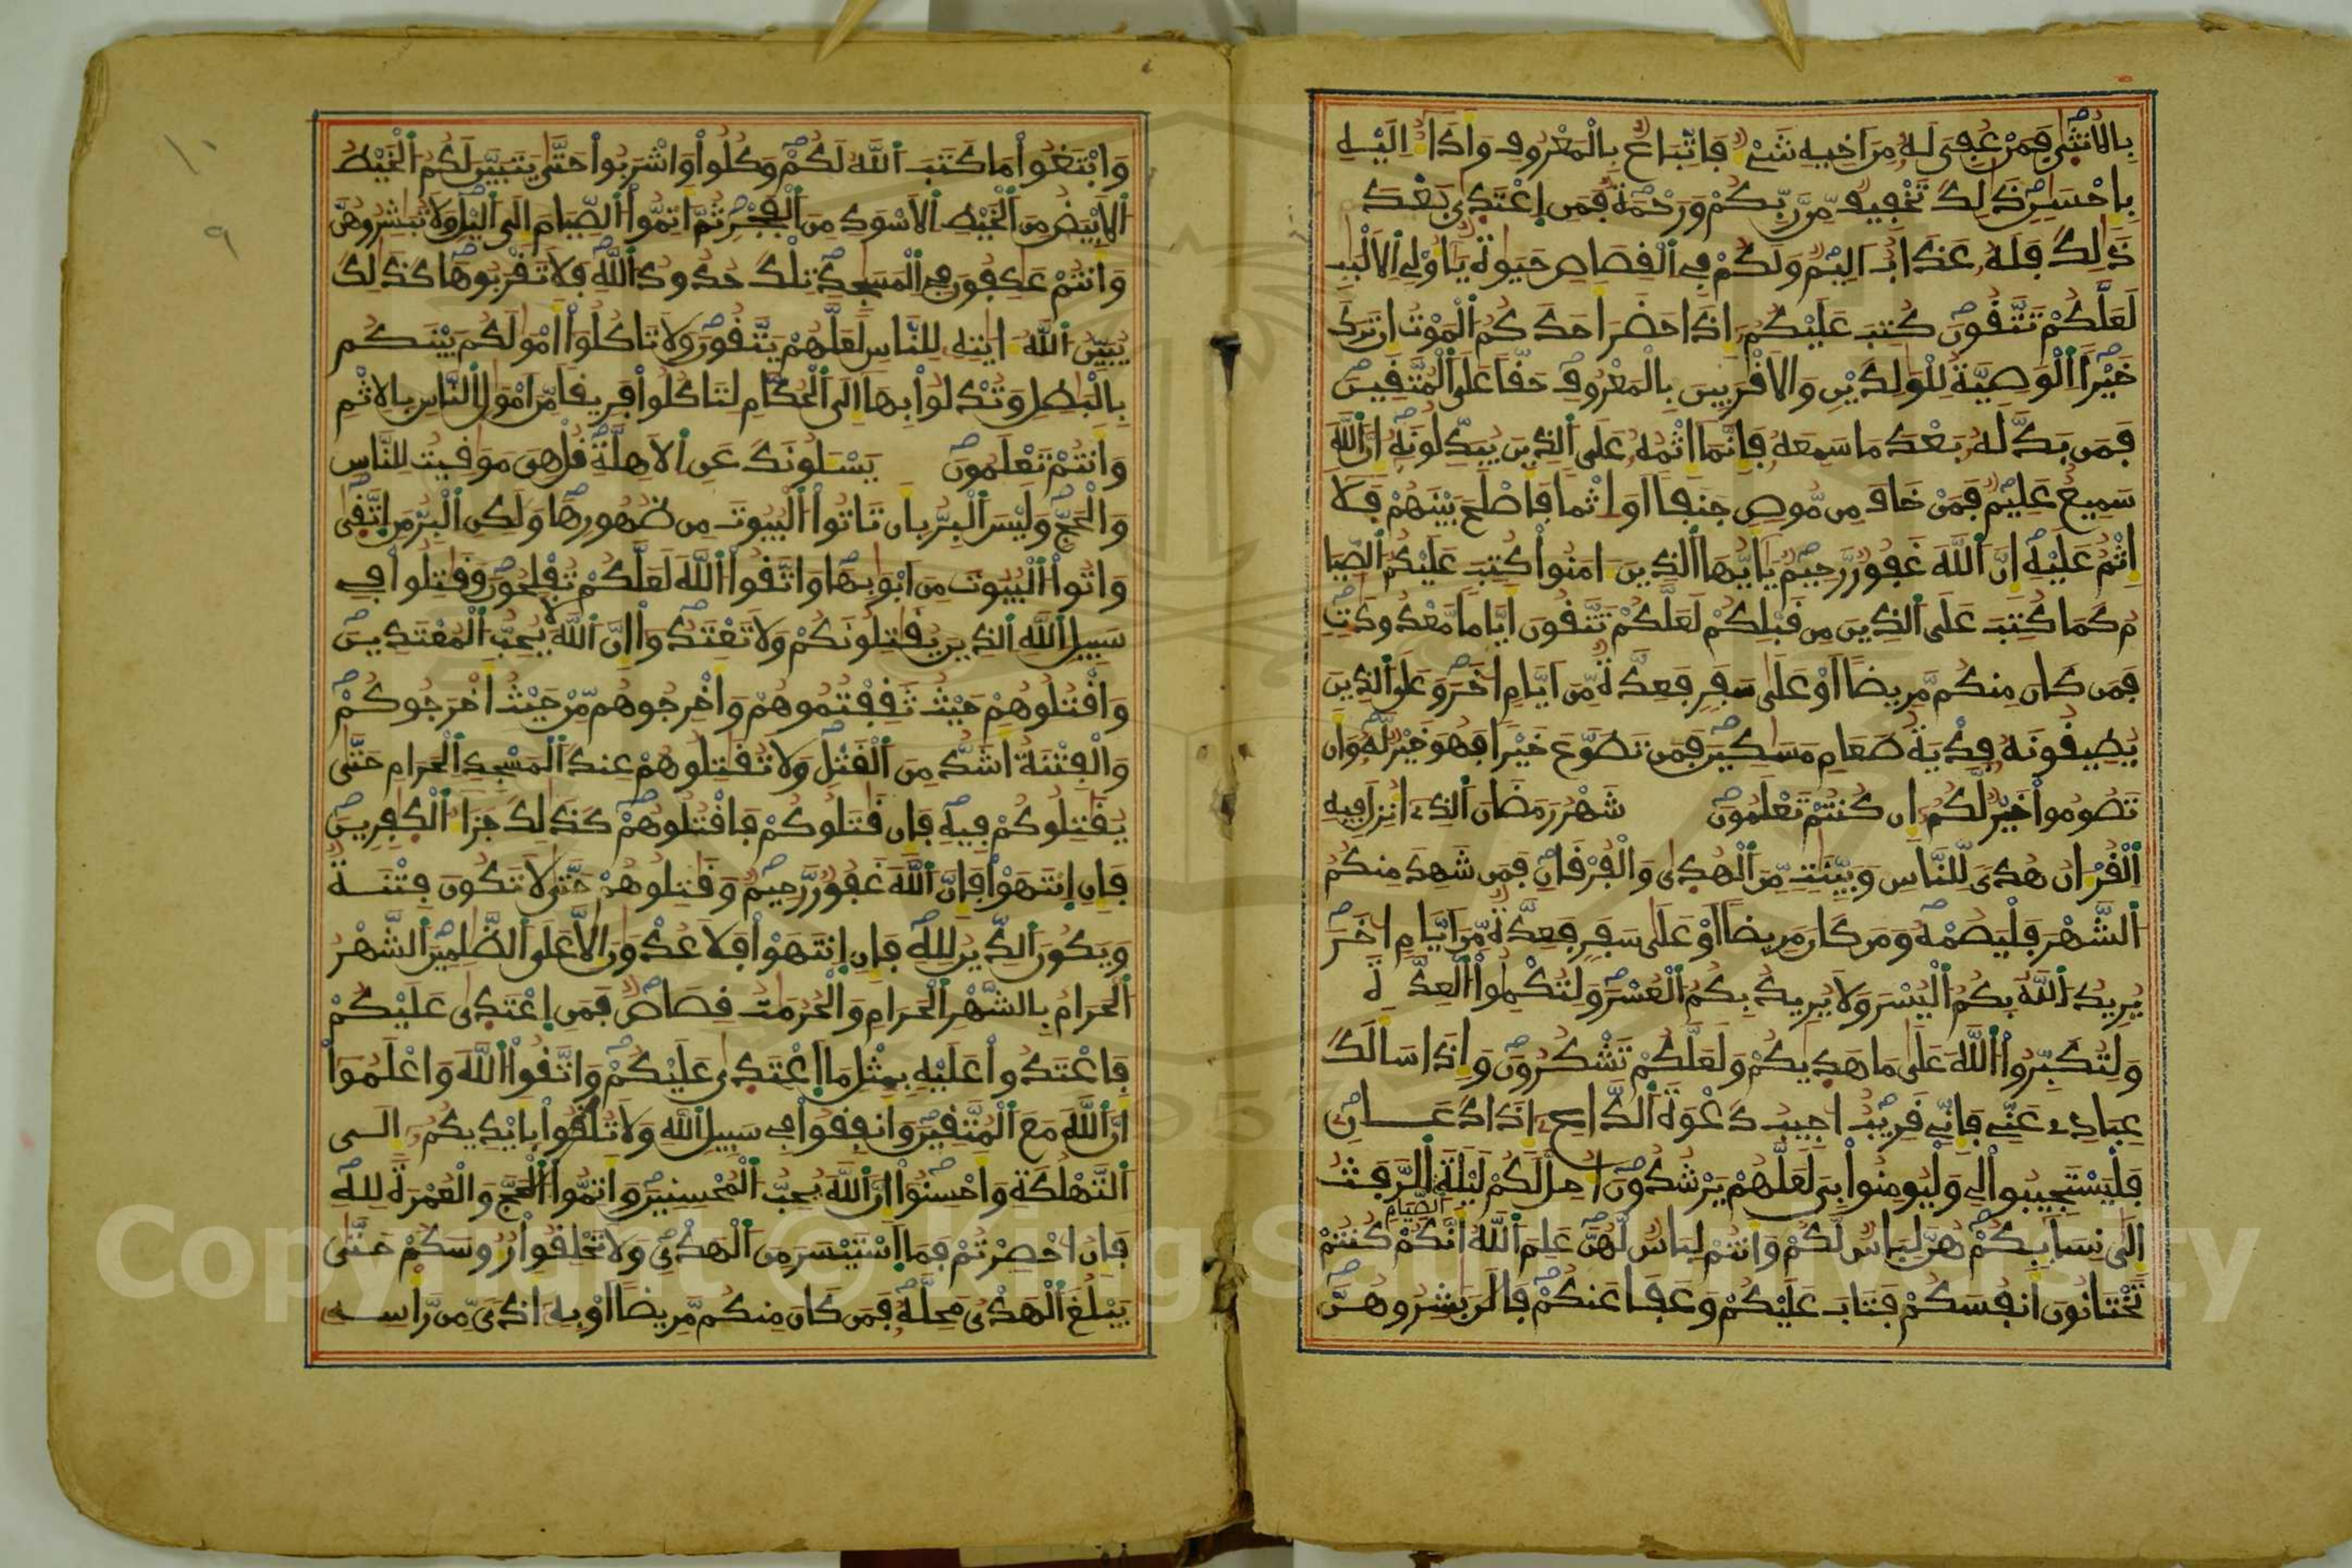 بِالْأُنثَىٰ فَمَنْ عُفِيَ لَهُ مِنَ اَخِيهِ شَيْءٌ فَاتِّبَاعٌ بِالْمَعْرُوفِ وَأَدَآءٌ اِلَيْهِ
بِإِحْسَٰنٍ ذَٰلِكَ تَخْفِيفٌ مِّن رَّبِّكُمْ وَرَحْمَةٌ فَمَنِ اِعْتَدَىٰ بَعْدَ
ذَٰلِكَ فَلَهُ عَذَابٌ اَلِيمٌ وَلَكُمْ فِي اَلْقِصَاصِ حَيَوٰةٌ يَٰأُوْلِي اِلَالْبَٰبِ
لَعَلَّكُمْ تَتَّقُونَ كُتِبَ عَلَيْكُمُ إِذَا حَضَرَ أَحَدَكُمُ اَلْمَوْتُ إِن تَرَكَ
خَيْرًا اَلْوَصِيَّةُ لِلْوَٰلِدَيْنِ وَالَاقْرَبِينَ بِالْمَعْرُوفِ حَقًّا عَلَى اَلْمُتَّقِينَ
فَمَن بَدَّلَهُ بَعْدَ مَا سَمِعَهُ فَإِنَّمَا إِثْمُهُ عَلَى اَلذِينَ يُبَدِّلُونَهُ إِنَّ اَللَّهَ
سَمِيعٌ عَلِيمٌ فَمَنْ خَافَ مِن مُّوصٍ جَنَفًا اَوِ اِثْمًا فَأَصْلَحَ بَيْنَهُمْ فَلَا
إِثْمَ عَلَيْهِ إِنَّ اَللَّهَ غَفُورٌ رَّحِيمٌ يَٰأَيُّهَا اَلذِينَ ءَامَنُوا كُتِبَ عَلَيْكُمُ اَلصِّيَا
مُ كَمَا كُتِبَ عَلَى اَلذِينَ مِن قَبْلِكُمْ لَعَلَّكُمْ تَتَّقُونَ أَيَّامًا مَّعْدُودَٰتٍ
فَمَن كَانَ مِنكُم مَّرِيضًا اَوْ عَلَىٰ سَفَرٍ فَعِدَّةٌ مِّنَ اَيَّامٍ اُخَرَ وَعَلَى اَلذِينَ
يُطِيقُونَهُ فِدْيَةُ طَعَامِ مَسَٰكِينَ فَمَن تَطَوَّعَ خَيْرًا فَهُوَ خَيْرٌ لَّهُ وَأَن
تَصُومُوا خَيْرٌ لَّكُمُ إِن كُنتُمْ تَعْلَمُونَ شَهْرُ رَمَضَانَ اَلذِي أُنزِلَ فِيهِ
اِلْقُرْءَانُ هُدًى لِّلنَّاسِ وَبَيِّنَٰتٍ مِّنَ اَلْهُدَىٰ وَالْفُرْقَانِ فَمَن شَهِدَ مِنكُمُ
اَلشَّهْرَ فَلْيَصُمْهُ وَمَن كَانَ مَرِيضًا اَوْ عَلَىٰ سَفَرٍ فَعِدَّةٌ مِّنَ اَيَّامٍ اُخَرَ
يُرِيدُ اَللَّهُ بِكُمُ اَلْيُسْرَ وَلَا يُرِيدُ بِكُمُ اَلْعُسْرَ وَلِتُكْمِلُوا اَلْعِدَّةَ
وَلِتُكَبِّرُوا اَللَّهَ عَلَىٰ مَا هَدَيٰكُمْ وَلَعَلَّكُمْ تَشْكُرُونَ وَإِذَا سَأَلَكَ
عِبَادِي عَنِّي فَإِنِّي قَرِيبٌ اُجِيبُ دَعْوَةَ اَلدَّاعِ إِذَا دَعَانِ
فَلْيَسْتَجِيبُوا لِي وَلْيُومِنُوا بِي لَعَلَّهُمْ يَرْشُدُونَ أُحِلَّ لَكُمْ لَيْلَةَ اَلصِّيَامِ اِلرَّفَثُ
إِلَىٰ نِسَآئِكُمْ هُنَّ لِبَاسٌ لَّكُمْ وَأَنتُمْ لِبَاسٌ لَّهُنَّ عَلِمَ اَللَّهُ أَنَّكُمْ كُنتُمْ
تَخْتَانُونَ أَنفُسَكُمْ فَتَابَ عَلَيْكُمْ وَعَفَا عَنكُمْ فَالَٰنَ بَٰشِرُوهُنَّ
وَابْتَغُوا مَا كَتَبَ اَللَّهُ لَكُمْ وَكُلُوا وَاشْرَبُوا حَتَّىٰ يَتَبَيَّنَ لَكُمُ اُلْخَيْطُ
اُلَابْيَضُ مِنَ اَلْخَيْطِ اِلَاسْوَدِ مِنَ اَلْفَجْرِ ثُمَّ أَتِمُّوا اُلصِّيَامَ إِلَى اَلَّيْلِ وَلَا تُبَٰشِرُوهُنَّ
وَأَنتُمْ عَٰكِفُونَ فِي اِلْمَسَٰجِدِ تِلْكَ حُدُودُ اُللَّهِ فَلَا تَقْرَبُوهَا كَذَٰلِكَ
يُبَيِّنُ اُللَّهُ ءَايَٰتِهِ لِلنَّاسِ لَعَلَّهُمْ يَتَّقُونَ وَلَا تَاكُلُوا أَمْوَٰلَكُم بَيْنَكُم
بِالْبَٰطِلِ وَتُدْلُوا بِهَا إِلَى اَلْحُكَّامِ لِتَاكُلُوا فَرِيقًا مِّنَ اَمْوَٰلِ اِلنَّاسِ بِالِاثْمِ
وَأَنتُمْ تَعْلَمُونَ يَسْـَٔلُونَكَ عَنِ اِلَاهِلَّةِ قُلْ هِيَ مَوَٰقِيتُ لِلنَّاسِ
وَالْحَجِّ وَلَيْسَ اَلْبِرُّ بِأَن تَاتُوا اُلْبُيُوتَ مِن ظُهُورِهَا وَلَٰكِنِ اِلْبِرُّ مَنِ اِتَّقَىٰ
وَاتُوا اُلْبُيُوتَ مِنَ اَبْوَٰبِهَا وَاتَّقُوا اُللَّهَ لَعَلَّكُمْ تُفْلِحُونَ وَقَٰتِلُوا فِي
سَبِيلِ اِللَّهِ اِلذِينَ يُقَٰتِلُونَكُمْ وَلَا تَعْتَدُوا إِنَّ اَللَّهَ لَا يُحِبُّ اُلْمُعْتَدِينَ
وَاقْتُلُوهُمْ حَيْثُ ثَقِفْتُمُوهُمْ وَأَخْرِجُوهُم مِّنْ حَيْثُ أَخْرَجُوكُمْ
وَالْفِتْنَةُ أَشَدُّ مِنَ اَلْقَتْلِ وَلَا تُقَٰتِلُوهُمْ عِندَ اَلْمَسْجِدِ اِلْحَرَامِ حَتَّىٰ
يُقَٰتِلُوكُمْ فِيهِ فَإِن قَٰتَلُوكُمْ فَاقْتُلُوهُمْ كَذَٰلِكَ جَزَآءُ اُلْكَٰفِرِينَ
فَإِنِ اِنتَهَوْا فَإِنَّ اَللَّهَ غَفُورٌ رَّحِيمٌ وَقَٰتِلُوهُمْ حَتَّىٰ لَا تَكُونَ فِتْنَةٌ
وَيَكُونَ اَلدِّينُ لِلهِ فَإِنِ اِنتَهَوْا فَلَا عُدْوَٰنَ إِلَّا عَلَى اَلظَّٰلِمِينَ اَلشَّهْرُ
اُلْحَرَامُ بِالشَّهْرِ اِلْحَرَامِ وَالْحُرُمَٰتُ قِصَاصٌ فَمَنِ اِعْتَدَىٰ عَلَيْكُمْ
فَاعْتَدُوا عَلَيْهِ بِمِثْلِ مَا اَعْتَدَىٰ عَلَيْكُمْ وَاتَّقُوا اُللَّهَ وَاعْلَمُوا
أَنَّ اَللَّهَ مَعَ اَلْمُتَّقِينَ وَأَنفِقُوا فِي سَبِيلِ اِللَّهِ وَلَا تُلْقُوا بِأَيْدِيكُمُ إِلَى
اَلتَّهْلُكَةِ وَأَحْسِنُوا إِنَّ اَللَّهَ يُحِبُّ اُلْمُحْسِنِينَ وَأَتِمُّوا اُلْحَجَّ وَالْعُمْرَةَ لِلهِ
فَإِنُ احْصِرْتُمْ فَمَا اَسْتَيْسَرَ مِنَ اَلْهَدْيِ وَلَا تَحْلِقُوا رُءُوسَكُمْ حَتَّىٰ
يَبْلُغَ اَلْهَدْيُ مَحِلَّهُ فَمَن كَانَ مِنكُم مَّرِيضًا اَوْ بِهِ أَذًى مِّن رَّاسِهِ
١٠
٩
Copyright © King Saud University